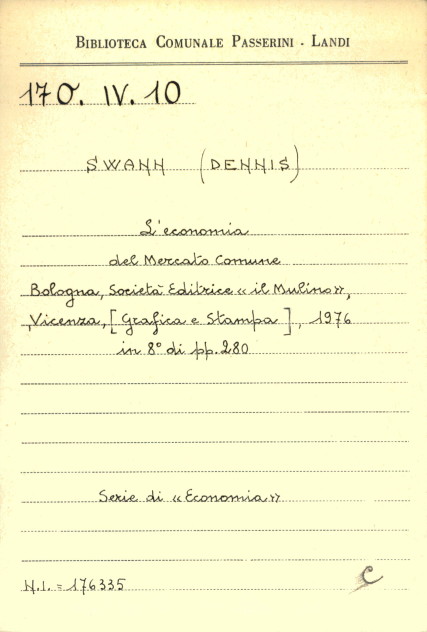 BIBLIOTECA COMUNALE PASSERINI - LANDI
170. IV. 10
SWANN (DENNIS)
L'economia
del Mercato Comune
Bologna, Società Editrice «il Mulino»,
Vicenza, [Grafica e Stampa], 1976
in 8° di pp. 280
Serie di «Economia»
N.I. = 176335
C